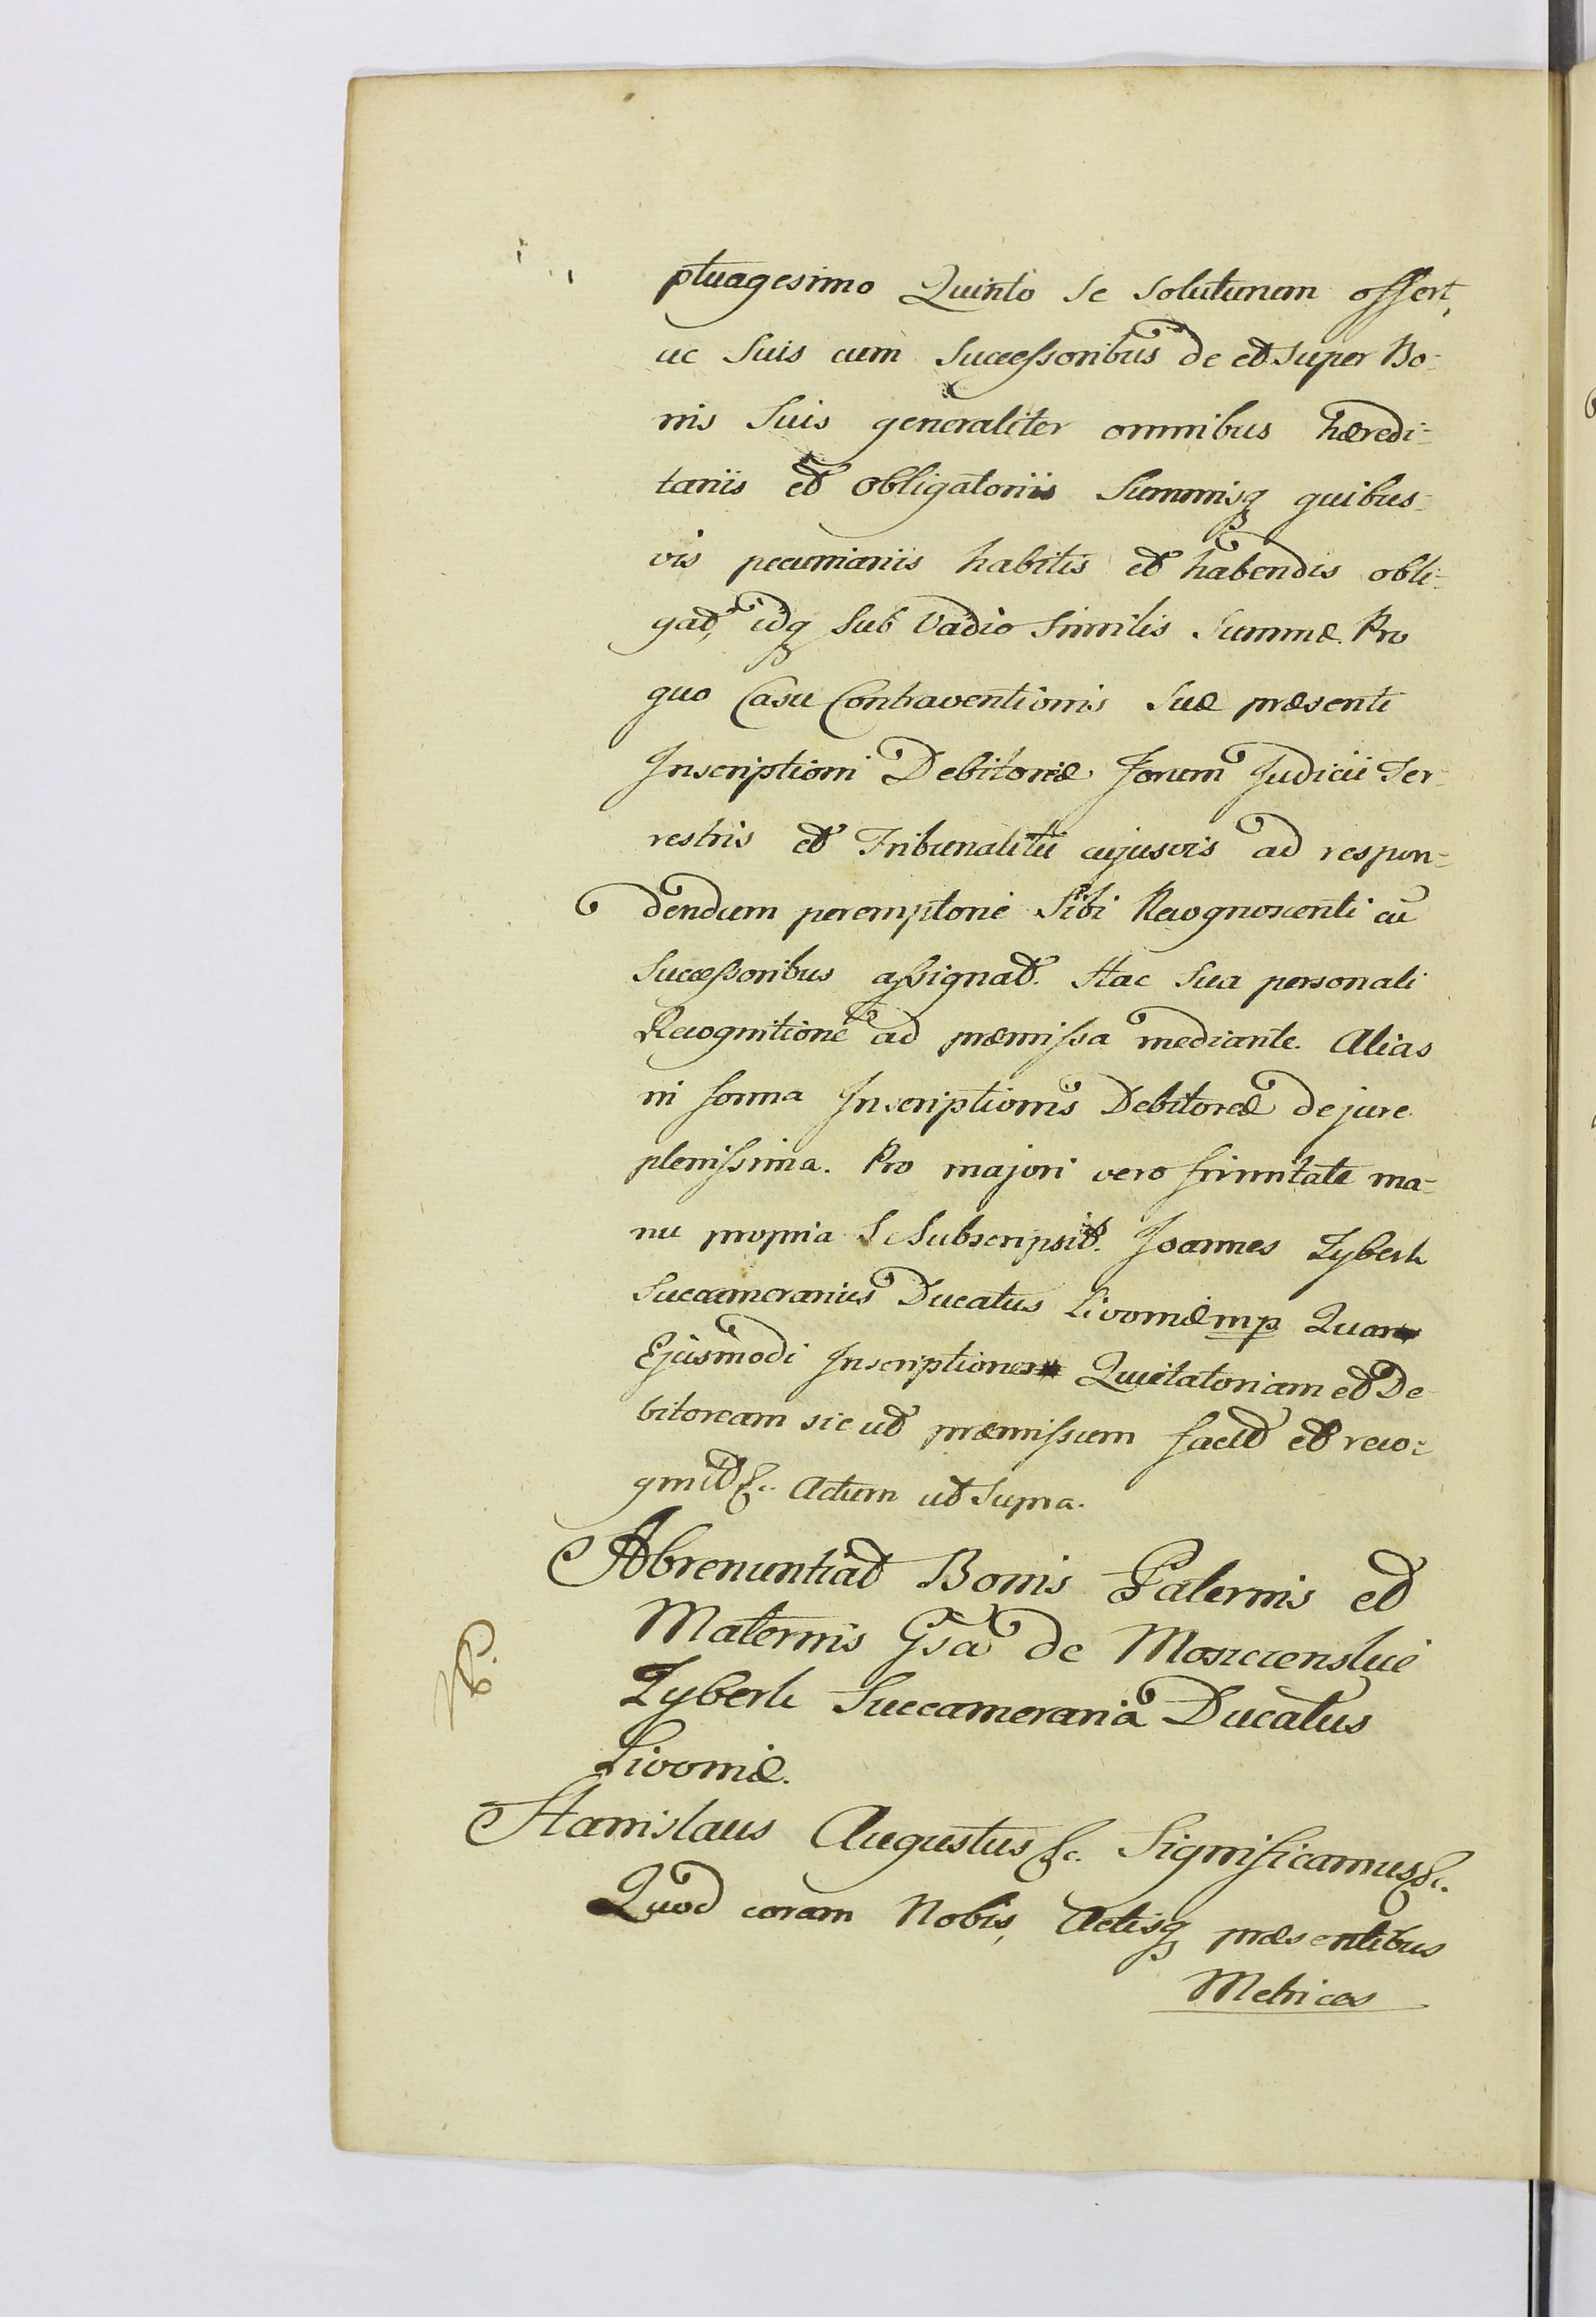 ptuagesimo Quinto se soluturum offert,
ac suis cum Successoribus de et super Bo-
nis suis generaliter omnibus hæredi-
tariis et obligatoriis Summisq quibus-
vis pecuniariis habitis et habendis obli-
gat, idq sub Vadio similis Summæ. Pro
quo Casu Contraventionis suæ præsenti
Inscriptioni Debitoriæ Forum Judicii Ter-
restris et Tribunalitii cujusvis ad respon-
dendum peremptorie sibi Recognoscenti cū
Successoribus assignat. Hac sua personali
Recognitione ad præmissa mediante. Alias
in forma Inscriptionis Debitoreæ de jure
plenissima. Pro majori vero firmitate ma-
nu propria Se Subscripsit. Joannes Zyberk
Succamerarius Ducatus Livoniæ mp Quar
Ejusmodi Inscriptionem Quietatoriam et De
bitoream sic ut præmissum facit et reco-
gnit &c. Actum ut supra.
Abrenuntiat Bonis Paternis et
Maternis Gsa de Moszczenskie
Zyberk Succameraria Ducatus
Livoniæ.
Stanislaus Augustus &c. Significamus &c.
Quod coram Nobis, Actisq præsentibus
Metrices